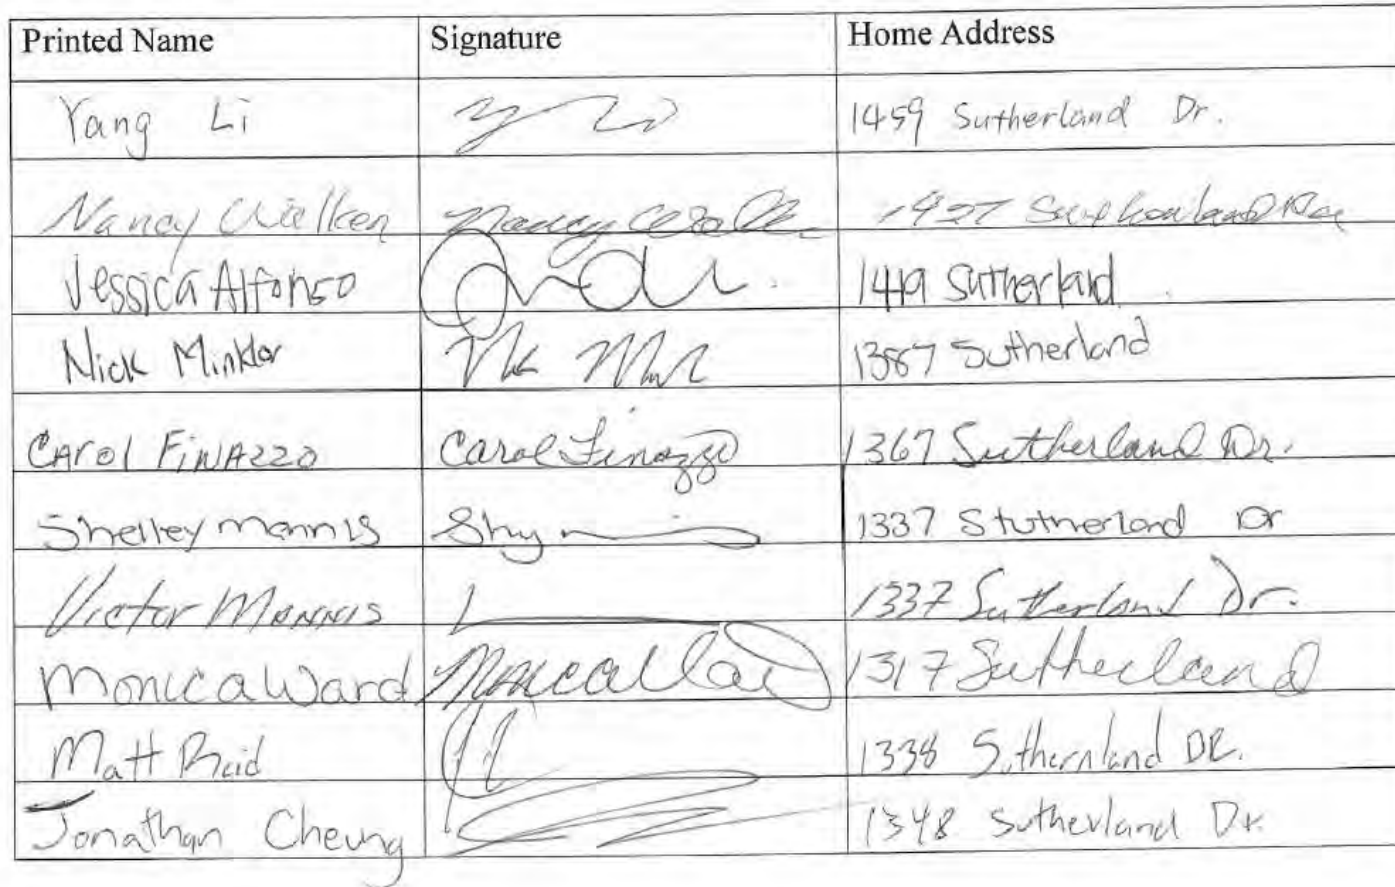 Printed Name Signature Home Address
Yang Li 1459 Sutherland Dr.
Nancy Walker Nancy 1427
Jessica Alfonso 1419 Sutherland
Nick Minkler 1387 Sutherland
CArol FiNAzzo Carol Finazzo 1367 Sutherland Dr.
Shelley mannis 1337 Stutherland Dr
Victor MANNIS 1337 Sutherland Dr.
Monica Ward Monica Ward 1317 Sutherland
Matt Reid 1338 Suthernland DR.
Jonathan Cheung 1348 Sutherland Dr.